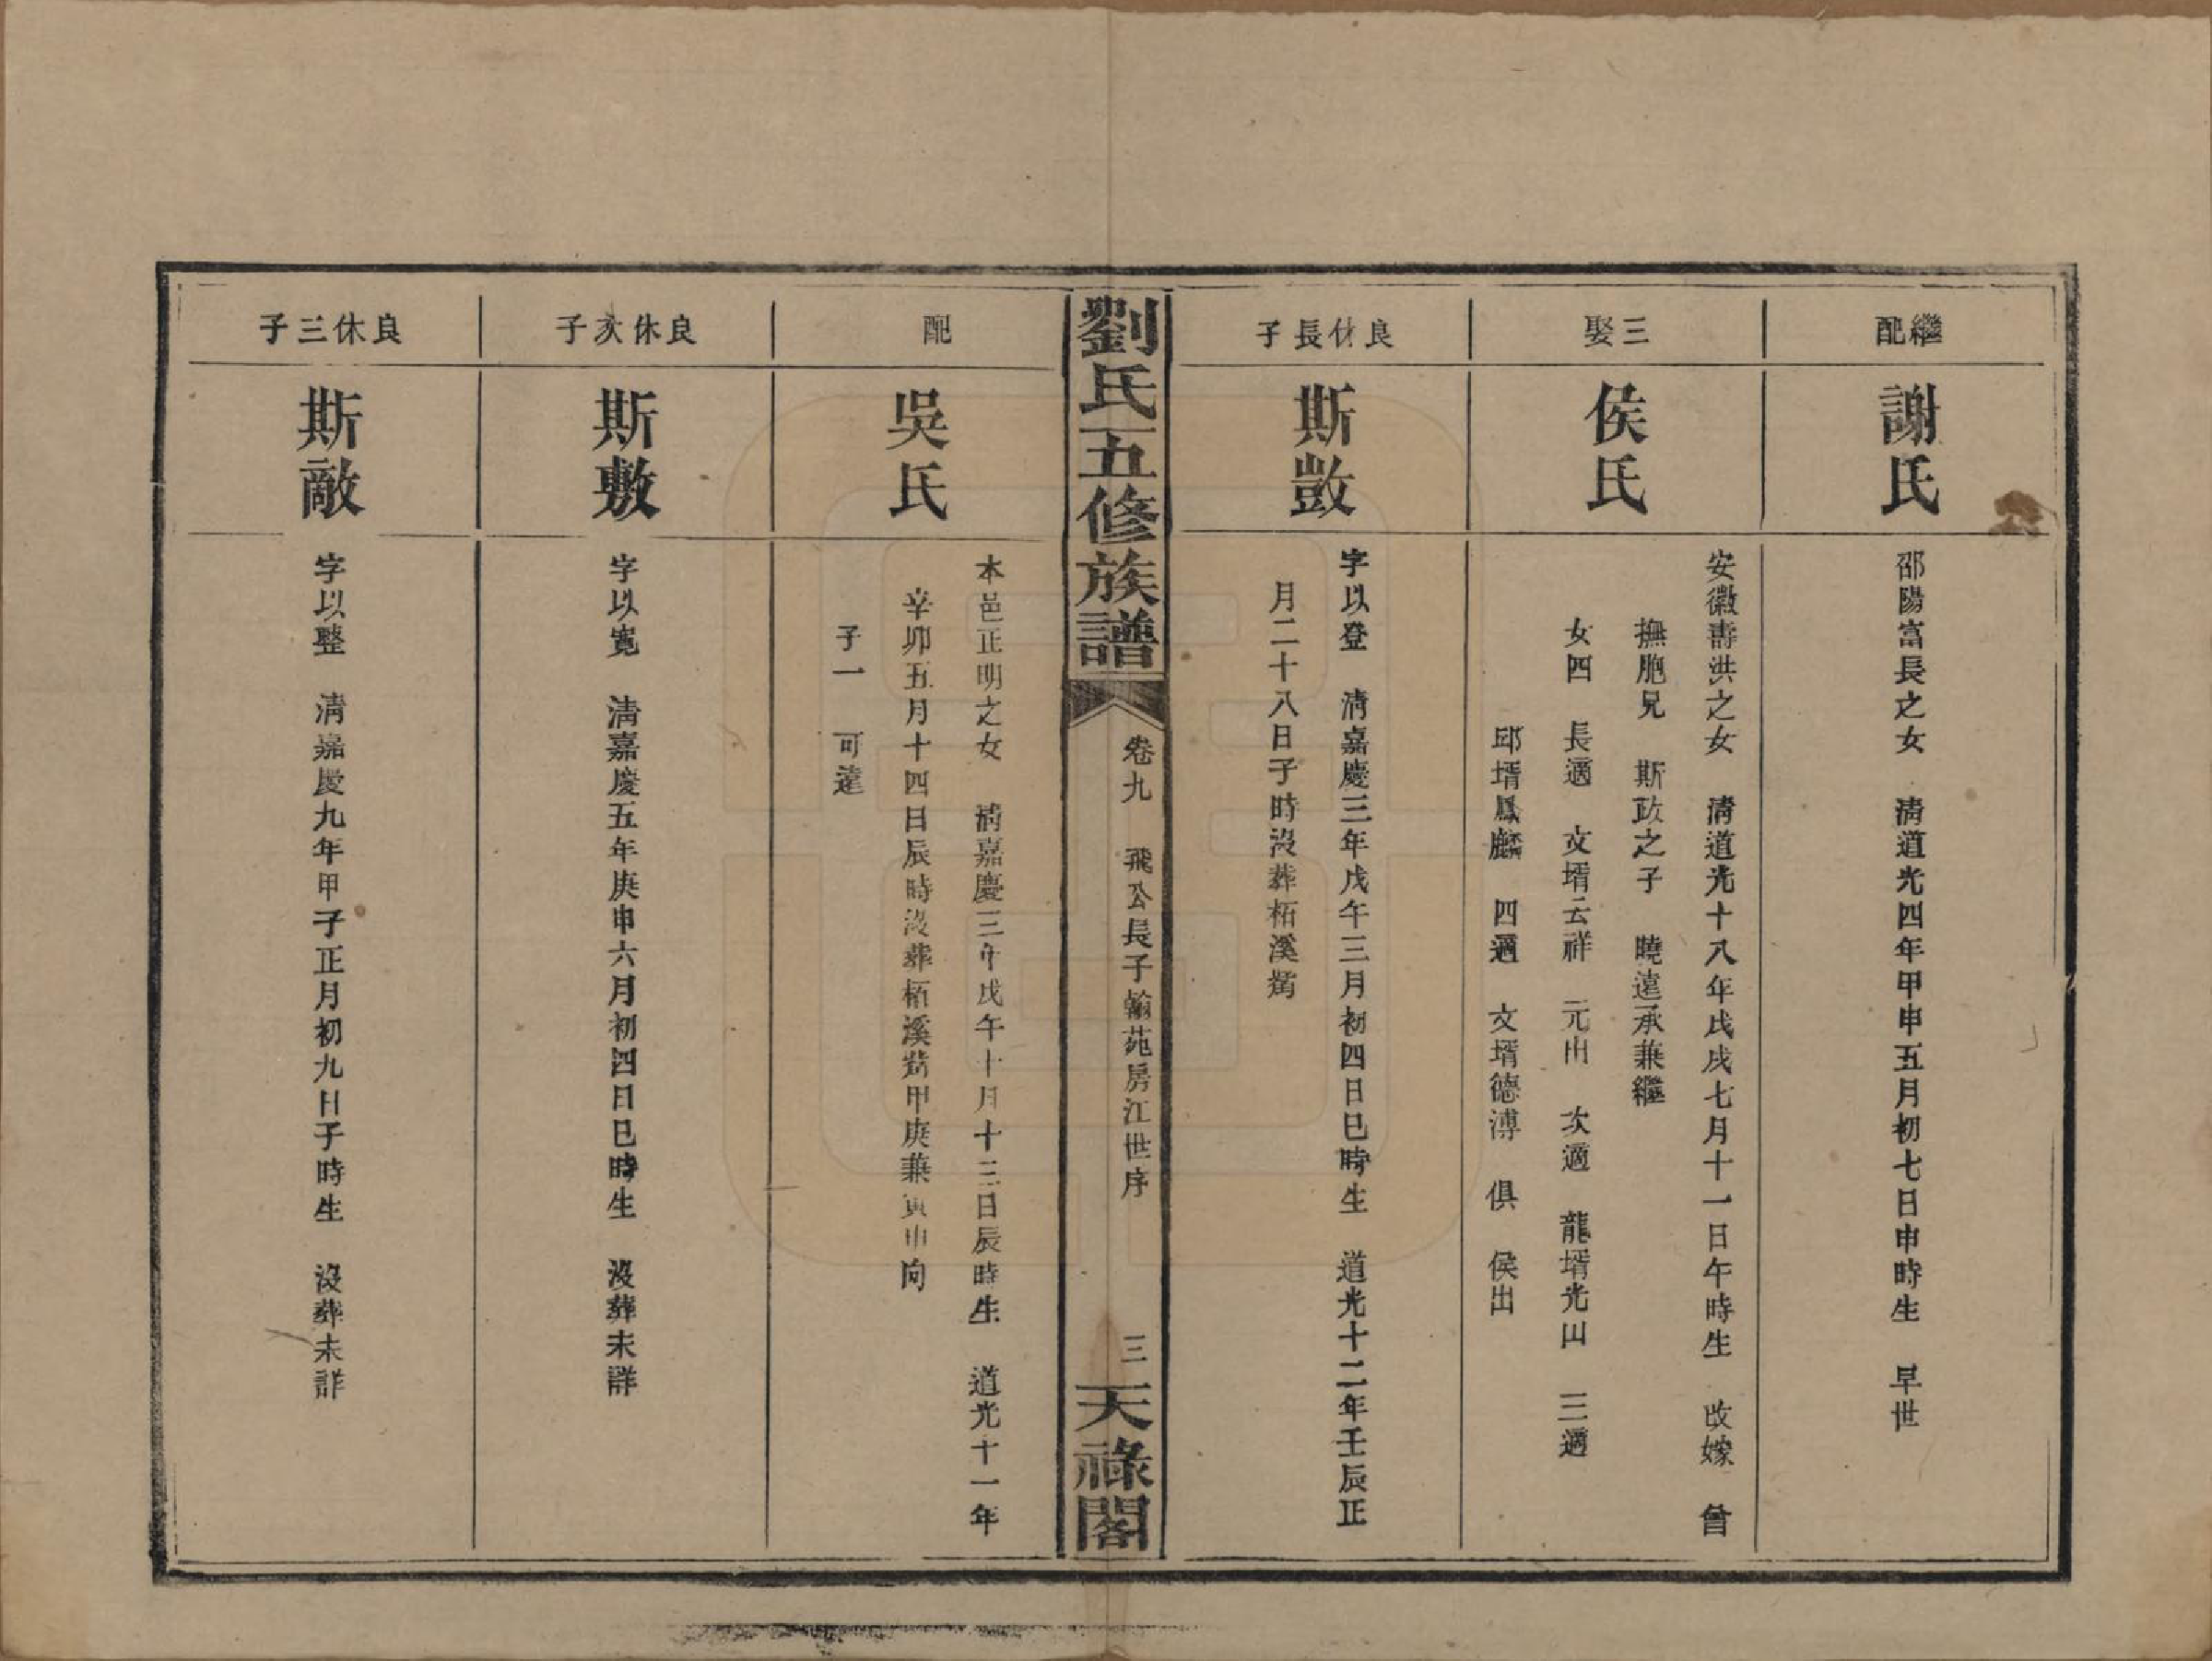 繼配
謝氏
邵陽富長之女　清道光四年甲申五月初七日申時生　早世
三娶
侯氏
安徽壽洪之女　清道光十八年戊戌七月十一日午時生　改嫁　曾
撫胞兄　斯政之子　曉遠承兼繼
女四　長適　文壻云祥　元出　次適　龍壻光田　三適
邱壻鳳麟　四適　文壻德溥　俱　侯出
良休長子
斯敳
字以登　清嘉慶三年戊午三月初四日巳時生　道光十二年壬辰正
月二十八日子時沒葬柘溪嵩
劉氏五修族譜
卷九　飛公長子翰苑房江世序　三
天祿閣
配
吳氏
本邑正明之女　清嘉慶三年戊午十月十三日辰時生　道光十一年
辛卯五月十四日辰時沒葬柘溪嵩甲庚兼寅申向
子一　可達
良休次子
斯敷
字以寬　清嘉慶五年庚申六月初四日巳時生　沒葬未詳
良休三子
斯敵
字以整　清嘉慶九年甲子正月初九日子時生　沒葬未詳